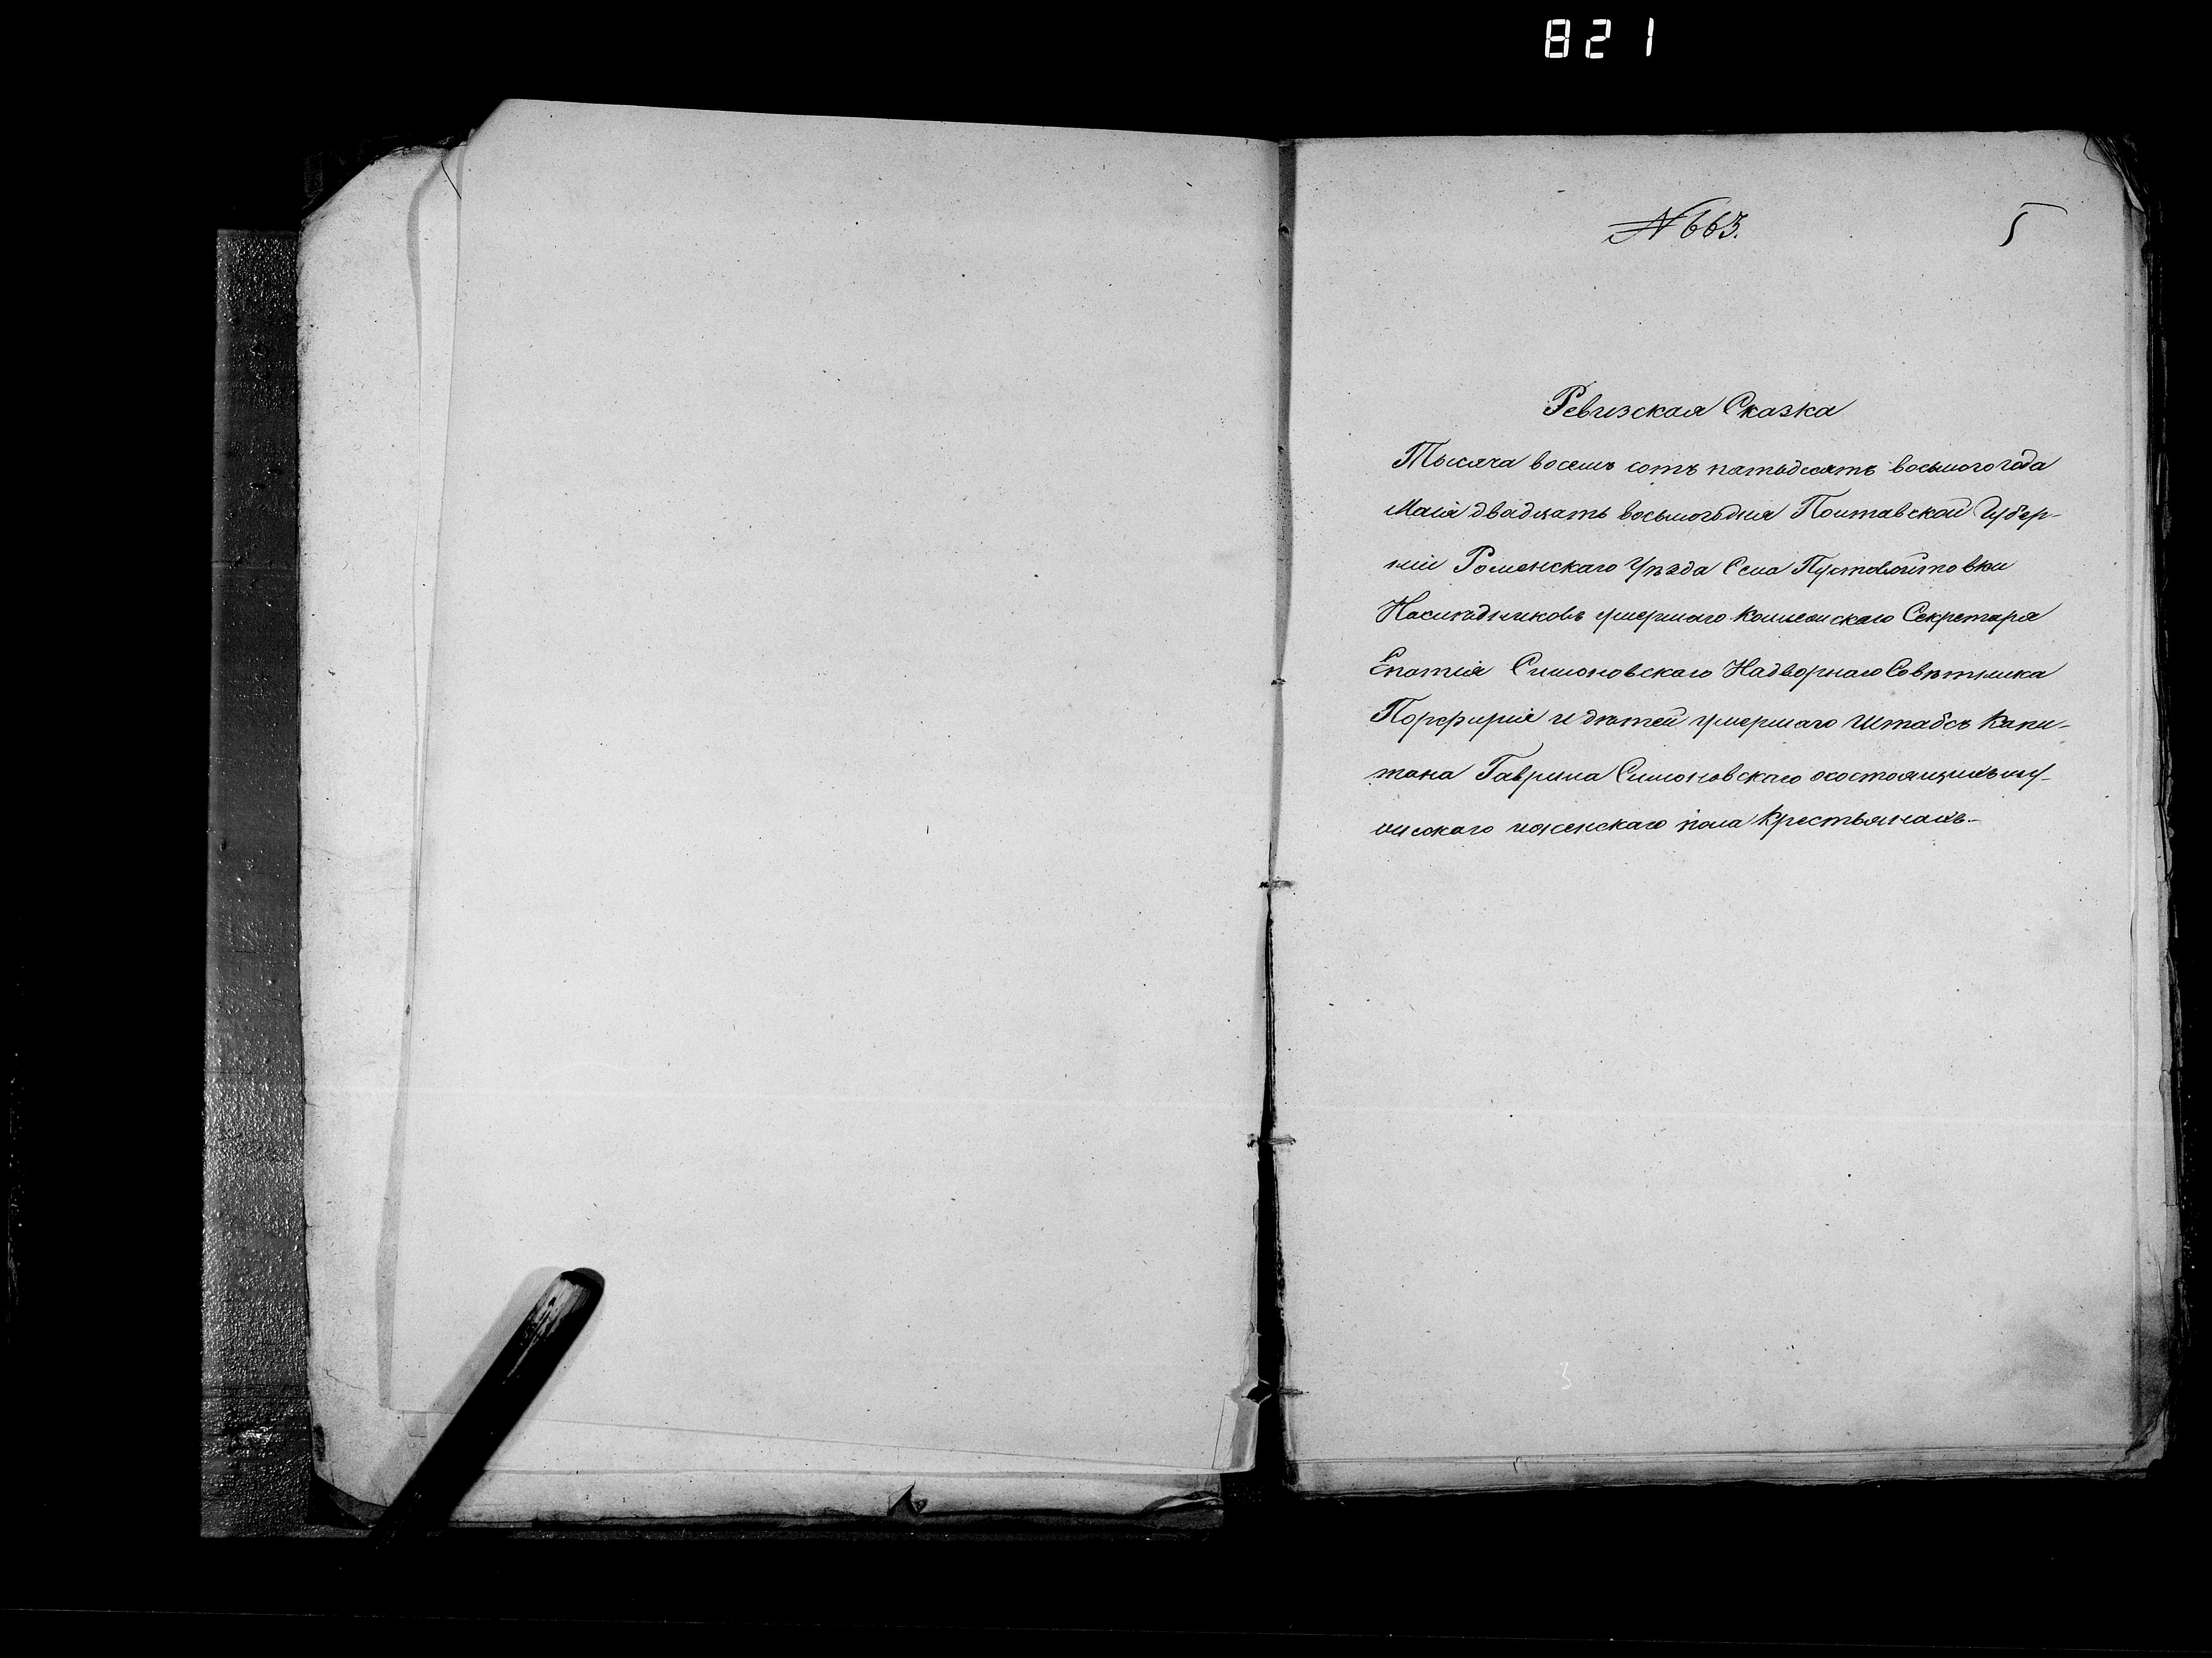 821
№ 663.
5
Ревизская Сказка
Тысяча восемь сотъ пятьдесятъ восьмого года
Маія двадцать восьмого дня Полтавской Губер-
ніи Роменскаго Уѣзда Села Пустовойтовки
Наслѣдниковъ умершаго Коллежскаго Секретаря
Епатія Симоновскаго Надворнаго Совѣтника
Порфирія и дѣтей умершаго Штабсъ Капи-
тана Гаврила Симоновскаго о состоящихъ му-
жескаго и женскаго пола Крестьянахъ.-